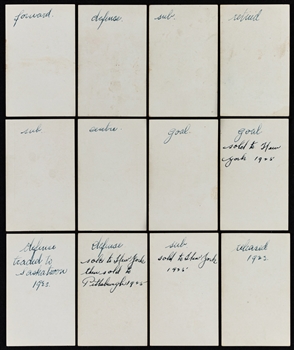 forward.
defense
sub.
retired
sub
centre
goal
goal
sold to New
York 1925
defense
traded to
saskatoon
1922
defense
sold to New York
then sold to
Pittsburgh 1925
sub
sold to New York
1925
released
1922